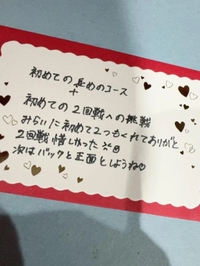 初めての長めのコース
+
初めての2回戦への挑戦
みらいに初めて2つもくれてありがと
2回戦惜しかった
次はバックと正面としようね